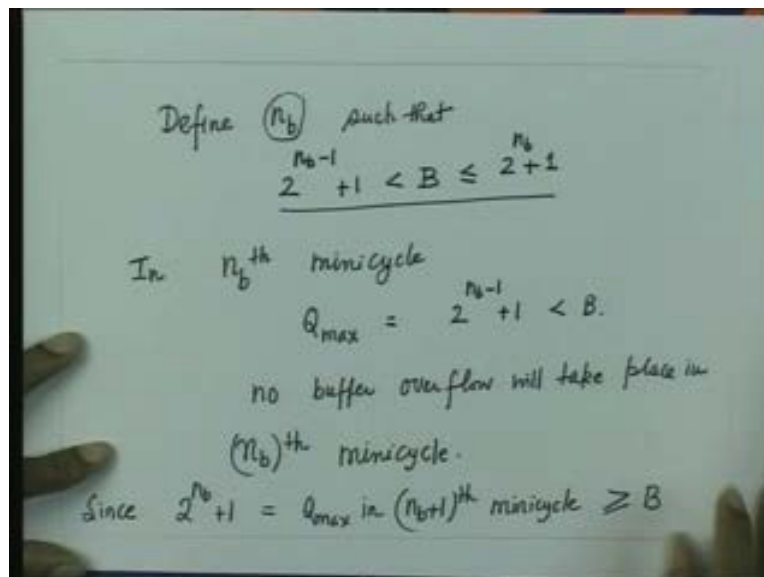 Define n_b such that
2^{n_b-1}+1 < B ≤ 2^{n_b}+1
In n_b^{th} minicycle
Q_max = 2^{n_b-1}+1 < B.
no buffer overflow will take place in
(n_b)^{th} minicycle.
Since 2^{n_b}+1 = Q_max in (n_b+1)^{th} minicycle ≥ B